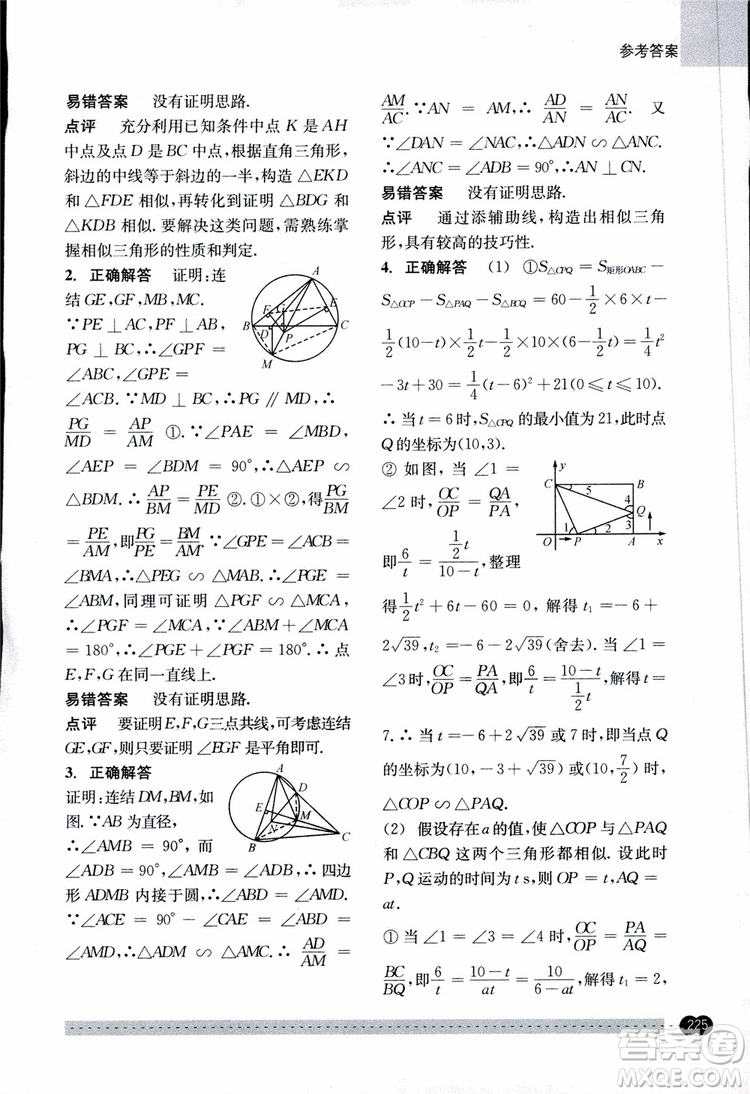 参考答案
易错答案 没有证明思路.
点评 充分利用已知条件中点 K 是 AH
中点及点 D 是 BC 中点,根据直角三角形,
斜边的中线等于斜边的一半,构造 △EKD
和 △FDE 相似,再转化到证明 △BDG 和
△KDB 相似.要解决这类问题,需熟练掌
握相似三角形的性质和判定.
2. 正确解答 证明:连
结 GE,GF,MB,MC.
∵PE⊥AC,PF⊥AB,
MD⊥BC,∴∠GPF =
∠ABC,∠GPE =
∠ACB.∵MD⊥BC,∴PG∥MD,∴
PG/MD = AP/AM ①.∵∠PAE = ∠MBD,
∠AEP = ∠BDM = 90°,∴△AEP ∽
△BDM.∴AP/BM = PE/MD ②.①×②,得PG/BM
= PE/AM,即PG/PE = BM/AM.∵∠GPE = ∠ACB =
∠BMA,∴△PEG ∽ △MAB.∴∠PGE =
∠ABM,同理可证明 △PGF ∽ △MCA,
∴∠PGF = ∠MCA,∵∠ABM + ∠MCA =
180°,∴∠PGE + ∠PGF = 180°.∴点
E,F,G 在同一直线上.
易错答案 没有证明思路.
点评 要证明E,F,G三点共线,可考虑连结
GE,GF,则只要证明 ∠EGF 是平角即可.
3. 正确解答
证明:连结 DM,BM,如
图.∵AB 为直径,
∴∠AMB = 90°,而
∠ADB = 90°,∠AMB = ∠ADB,∴四边
形 ADMB 内接于圆,∴∠ABD = ∠AMD.
∵∠ACE = 90° - ∠CAE = ∠ABD =
∠AMD,∴△ADM ∽ △AMC.∴AD/AM =
AM/AC.∵AN = AM,∴AD/AN = AN/AC.又
∵∠DAN = ∠NAC,∴△ADN ∽ △ANC.
∴∠ANC = ∠ADB = 90°,∴AN⊥CN.
易错答案 没有证明思路.
点评 通过添辅助线,构造出相似三角
形,具有较高的技巧性.
4. 正确解答 (1) ①S△CPQ = S矩形OABC -
S△OCP - S△PAQ - S△BCQ = 60 - 1/2×6×t -
1/2(10-t)×1/2t - 1/2×10×(6-1/2t) = 1/4t²
-3t+30 = 1/4(t-6)²+21(0≤t≤10).
∴当 t = 6 时,S△CPQ 的最小值为 21,此时点
Q 的坐标为(10,3).
② 如图,当 ∠1 =
∠2 时,OC/OP = QA/PA,
即6/t = (1/2t)/(10-t),整理
得1/2t²+6t-60 = 0,解得 t₁ = -6+
2√39,t₂ = -6-2√39(舍去).当∠1 =
∠3 时,OC/OP = PA/QA,即6/t = (10-t)/(1/2t),解得 t =
7.∴当 t = -6+2√39 或 7 时,即当点 Q
的坐标为(10,-3+√39)或(10,7/2)时,
△COP ∽ △PAQ.
(2) 假设存在 a 的值,使 △COP 与 △PAQ
和 △CBQ 这两个三角形都相似.设此时
P,Q 运动的时间为 t s,则 OP = t,AQ =
at.
① 当 ∠1 = ∠3 = ∠4 时,OC/OP = PA/AQ =
BC/BQ,即6/t = (10-t)/at = 10/(6-at),解得 t₁ = 2,
225
答案圈
MXQE.COM